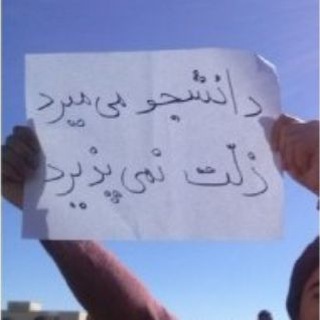 دانشجو می میرد
ذلّت نمی پذیرد